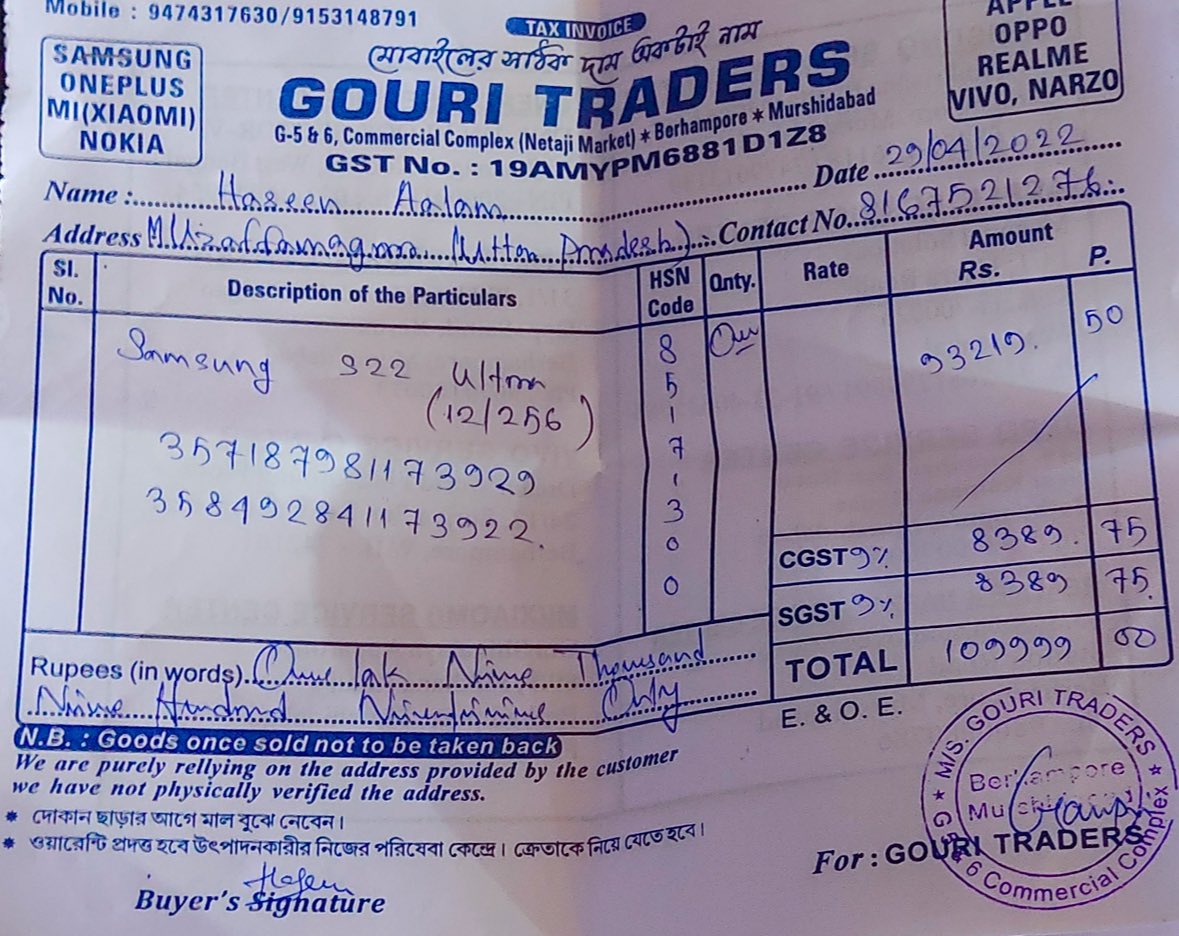 Mobile : 9474317630/9153148791
TAX INVOICE
মোবাইলের সঠিক দাম একটাই নাম
SAMSUNG
ONEPLUS
MI(XIAOMI)
NOKIA
GOURI TRADERS
APPLE
OPPO
REALME
VIVO, NARZO
G-5 & 6, Commercial Complex (Netaji Market) * Berhampore * Murshidabad
GST No. : 19AMYPM6881D1Z8
Name : Haseen Aalam Date 29/04/2022
Address (Utton Prndesh) Contact No. 8167521276
Sl. No. Description of the Particulars HSN Code Qnty. Rate Amount Rs. P.
Samsung S22 Ultra 85171300 One 93219. 50
(12/256)
357187981173929
358492841173922.
CGST 9% 8389. 75
SGST 9% 8389 75
TOTAL 109999 00
Rupees (in words) One lak Nine Thousand
Nine Hundred Only
E. & O. E.
N.B. : Goods once sold not to be taken back
We are purely rellying on the address provided by the customer
we have not physically verified the address.
* দোকান ছাড়ার আগে মাল বুঝে নেবেন।
* ওয়ারেন্টি প্রদত্ত হবে উৎপাদনকারীর নিজের পরিষেবা কেন্দ্রে। ক্রেতাকে নিয়ে যেতে হবে।
M/S. GOURI TRADERS
Berhampore
6 Commercial Complex
For : GOURI TRADERS
Buyer's Signature